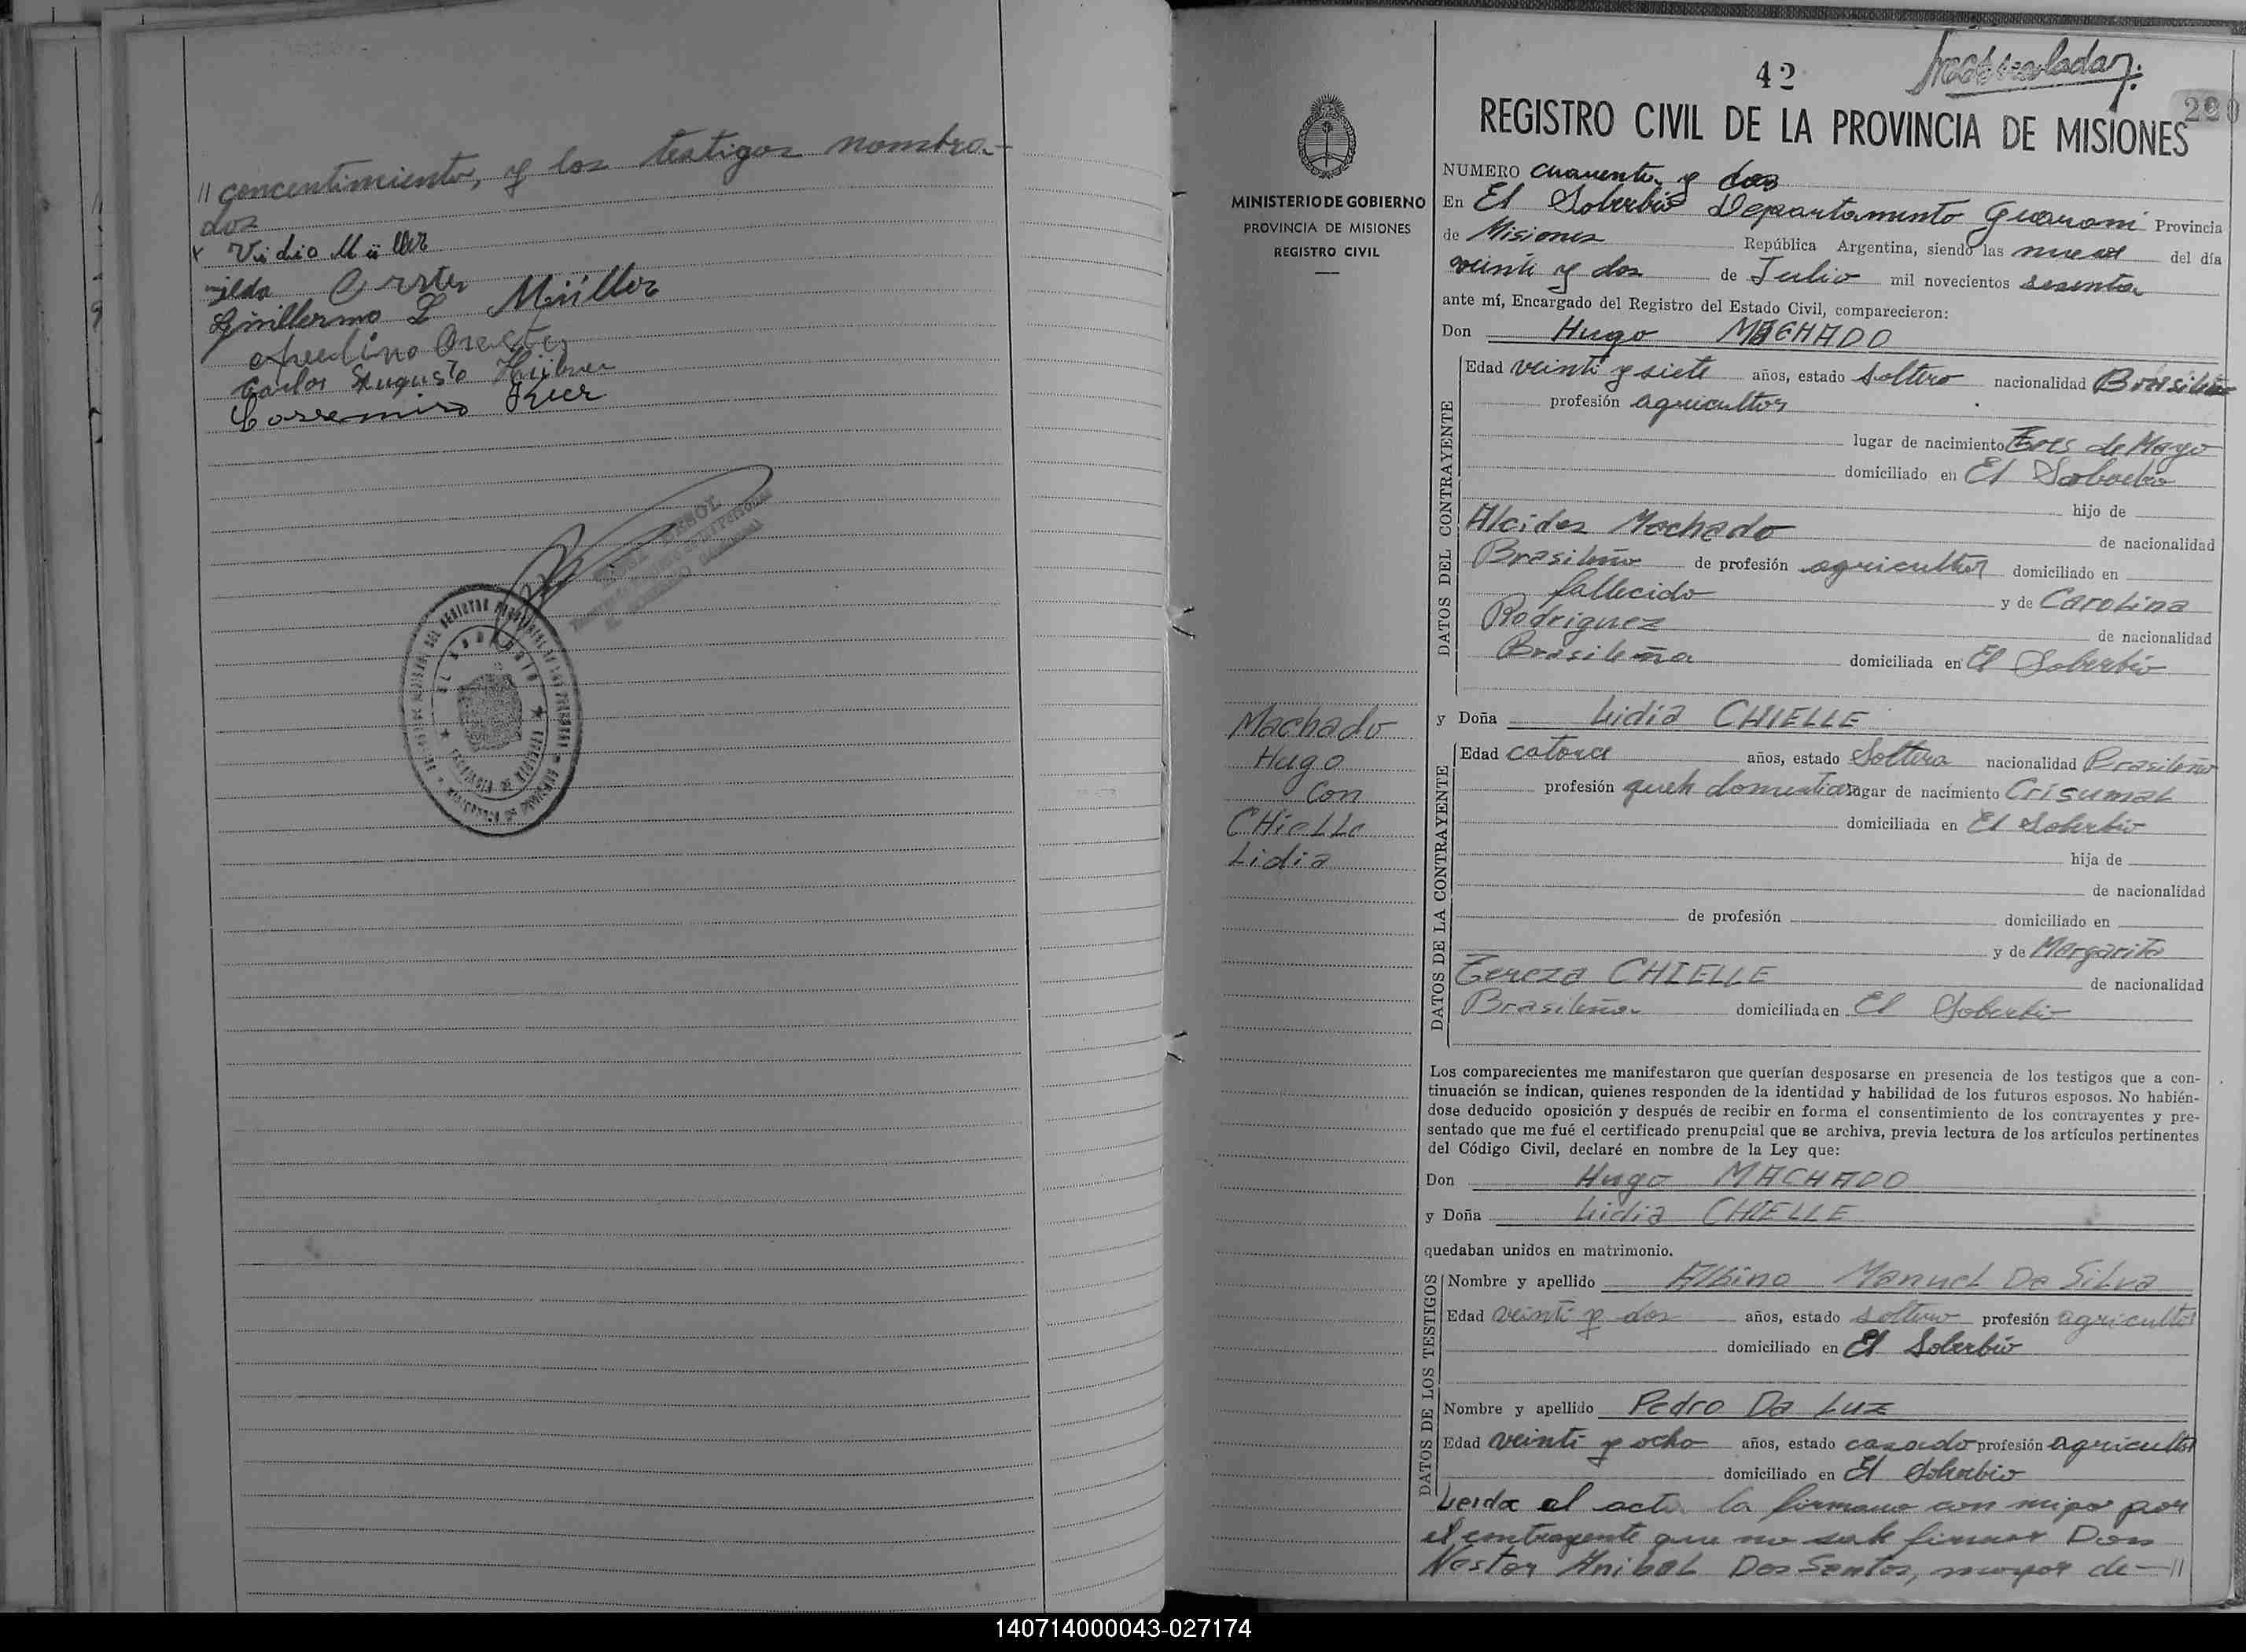 // concentimiento, y los testigos nombra-
dos
Vidio Müller
Guillermo L Müller
Carlos Augusto Hübner
Cassemiro Kerr
MINISTERIO DE GOBIERNO
PROVINCIA DE MISIONES
REGISTRO CIVIL
Machado
Hugo
Con
CHieLLe
Lidia
42
220
REGISTRO CIVIL DE LA PROVINCIA DE MISIONES
NUMERO cuarenta y dos
En El Soberbio Departamento Guarani Provincia
de Misiones República Argentina, siendo las nueve del día
veinti y dos de Julio mil novecientos sesenta
ante mí, Encargado del Registro del Estado Civil, comparecieron:
Don Hugo MACHADO
DATOS DEL CONTRAYENTE
Edad veinti y siete años, estado soltero nacionalidad Brasileño
profesión agricultor
lugar de nacimiento Tres de Mayo
domiciliado en El Soberbio
hijo de
Alcides Machado de nacionalidad
Brasileño de profesión agricultor domiciliado en
fallecido y de Carolina
Rodriguez de nacionalidad
Brasileña domiciliada en El Soberbio
y Doña Lidia CHIELLE
DATOS DE LA CONTRAYENTE
Edad catorce años, estado Soltera nacionalidad Brasileña
profesión queh domesticos lugar de nacimiento Crisumal
domiciliada en El Soberbio
hija de
de nacionalidad
de profesión domiciliado en
y de Margarita
Tereza CHIELLE de nacionalidad
Brasileña domiciliada en El Soberbio
Los comparecientes me manifestaron que querían desposarse en presencia de los testigos que a con-
tinuación se indican, quienes responden de la identidad y habilidad de los futuros esposos. No habién-
dose deducido oposición y después de recibir en forma el consentimiento de los contrayentes y pre-
sentado que me fué el certificado prenupcial que se archiva, previa lectura de los artículos pertinentes
del Código Civil, declaré en nombre de la Ley que:
Don Hugo MACHADO
y Doña Lidia CHIELLE
quedaban unidos en matrimonio.
DATOS DE LOS TESTIGOS
Nombre y apellido Albino Manuel De Silva
Edad veinti y dos años, estado soltero profesión agricultor
domiciliado en El Soberbio
Nombre y apellido Pedro Da Luz
Edad veinti y ocho años, estado casado profesión agricultor
domiciliado en El Soberbio
Leida el acta la firman con migo por
el contrayente que no sabe firmar Don
Nestor Anibal Dos Santos, mayor de -//
140714000043-027174